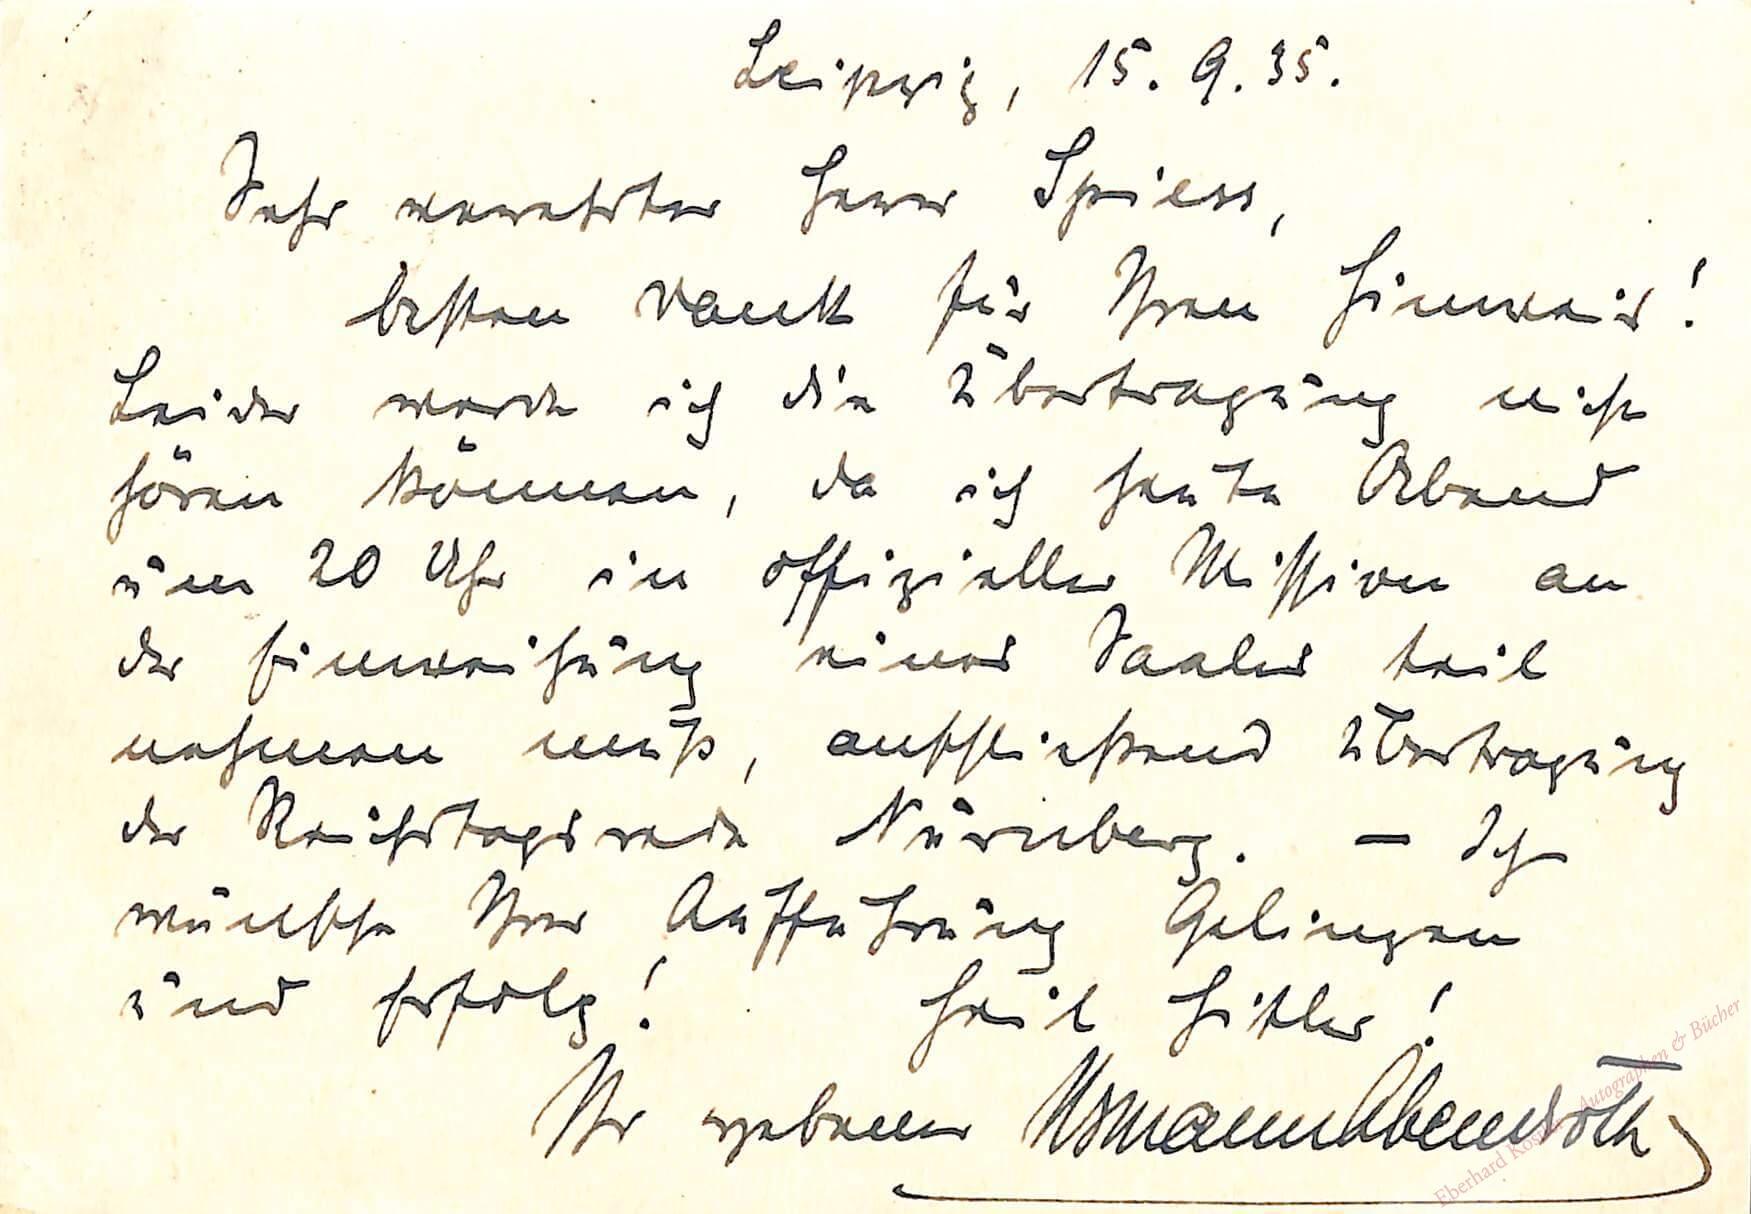 Leipzig, 15. 9. 35.
Sehr verehrter Herr Spiess,
besten Dank für Ihren Hinweis!
Leider werde ich die Übertragung nicht
hören können, da ich heute Abend
um 20 Uhr in offizieller Mission an
der Einweihung eines Saales teil
nehmen muß, anschließend Übertragung
der Reichstagsrede Nürnberg. – Ich
wünsche Ihrer Aufführung Gelingen
und Erfolg! Heil Hitler!
Ihr ergebener Hermann Abendroth
Eberhard Köstler Autographen & Bücher